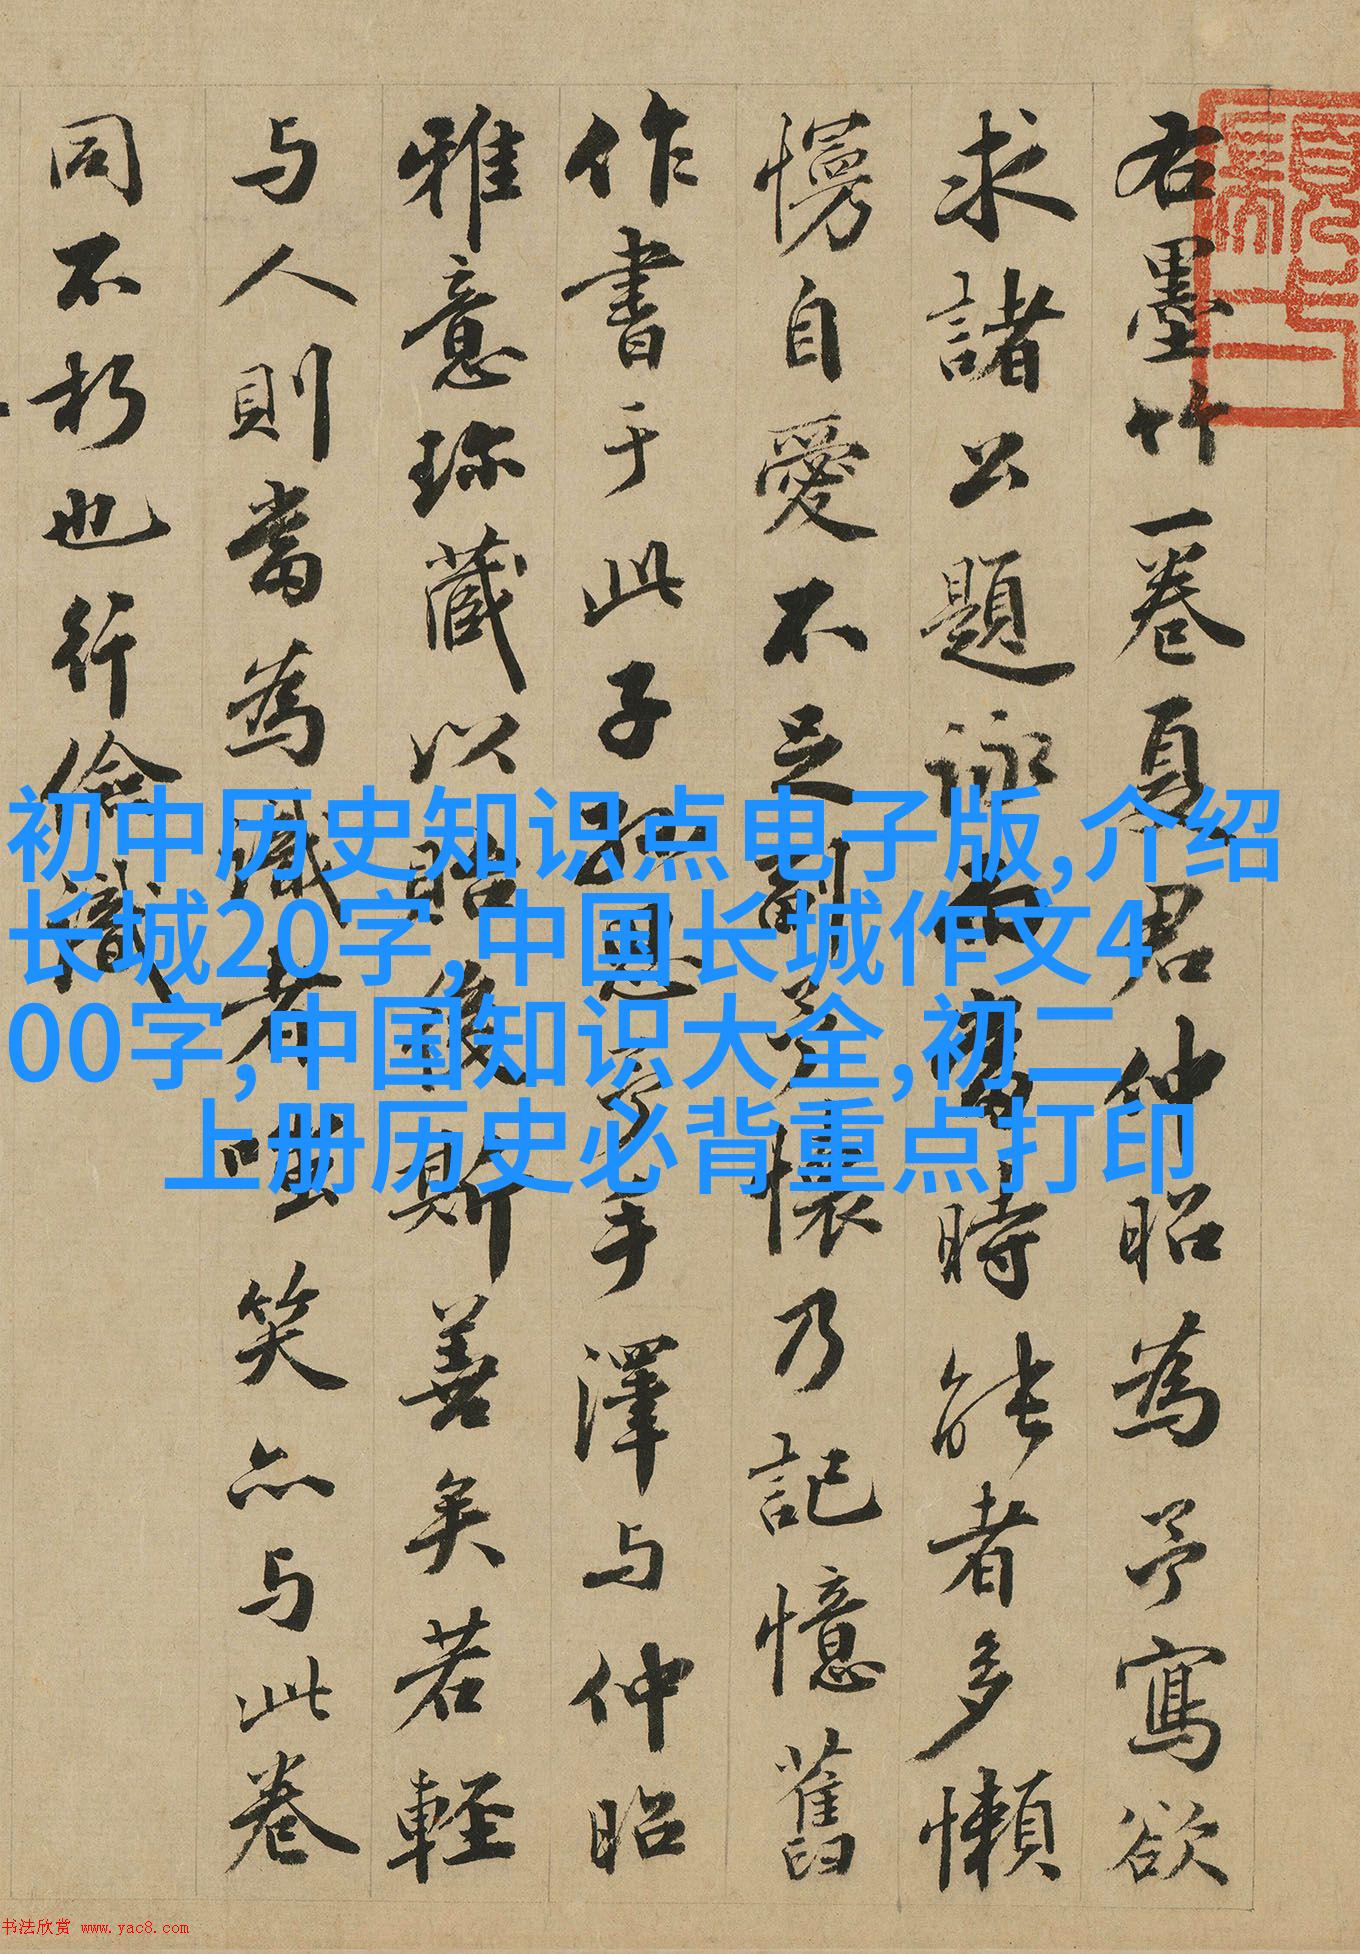 右墨竹一卷夏君仲昭為予寫欲
求諸公題詠時能者多懶
慢自愛不足副予懷乃記憶舊
作書于此子孫思予手澤與仲昭
雅意珎藏以貽後斯善矣若輕
与人則當為識者嗤笑亦与此卷
同不朽也行儉識
初中历史知识点电子版,介绍
长城20字,中国长城作文4
00字,中国知识大全,初二
上册历史必背重点打印
书法欣赏 www.yac8.com